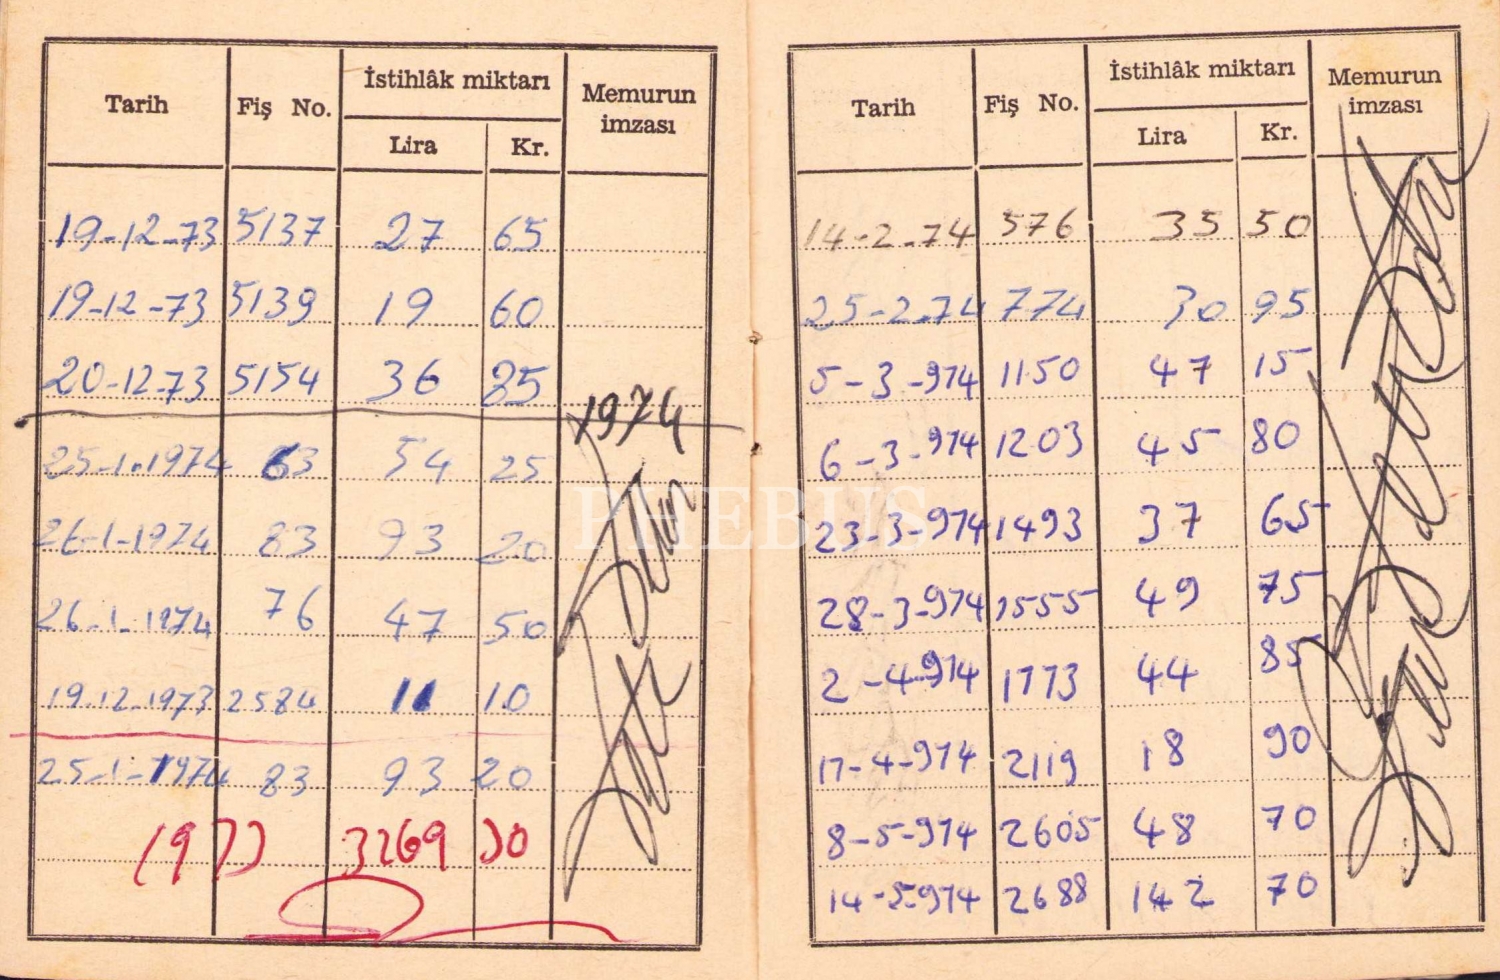 Tarih Fiş No. İstihlâk miktarı Memurun imzası
Lira Kr.
19-12-73 5137 27 65
19-12-73 5139 19 60
20-12-73 5154 36 85
1974
25-1-1974 63 54 25
26-1-1974 83 93 20
26-1-1974 76 47 50
19.12.1973 2584 11 10
25-1-1974 83 93 20
3269
Tarih Fiş No. İstihlâk miktarı Memurun imzası
Lira Kr.
14-2-74 576 35 50
25-2-74 774 30 95
5-3-974 1150 47 15
6-3-974 1203 45 80
23-3-974 1493 37 65
28-3-974 1555 49 75
2-4-974 1773 44 85
17-4-974 2119 18 90
8-5-974 2605 48 70
14-5-974 2688 142 70
PHEBUS